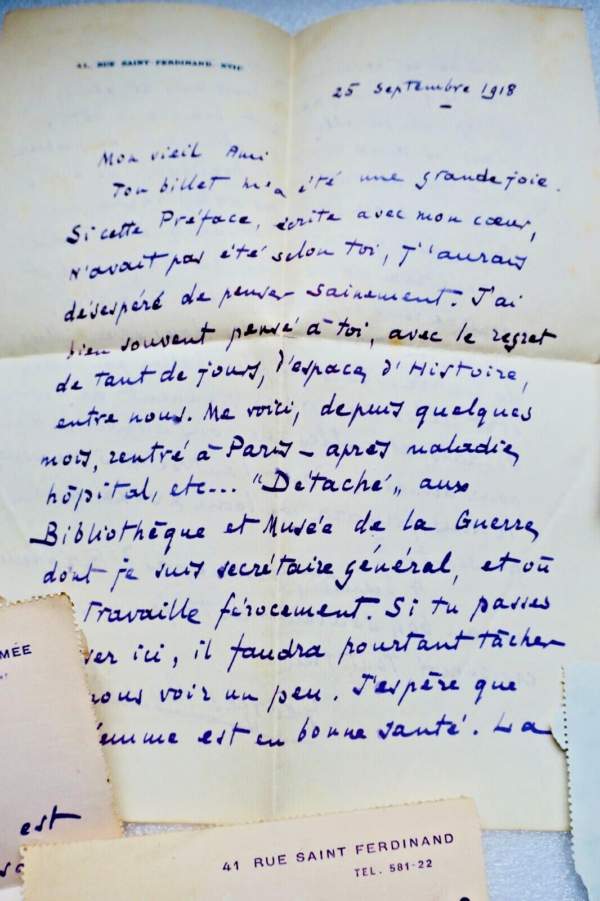 41, RUE SAINT-FERDINAND, XVIIe
25 Septembre 1918
Mon vieil Ami
Ton billet m'a été une grande joie.
Si cette Préface, écrite avec mon cœur,
n'avait pas été selon toi, j'aurais
désespéré de penser sainement. J'ai
bien souvent pensé à toi, avec le regret
de tant de jours, d'espace, d'Histoire,
entre nous. Me voici, depuis quelques
mois, rentré à Paris – après maladie,
hôpital, etc... "Détaché„ aux
Bibliothèque et Musée de la Guerre,
dont je suis secrétaire général, et où
travaille férocement. Si tu passes
ver ici, il faudra pourtant tâcher
nous voir un peu. J'espère que
femme est en bonne santé. La
MÉE
est
41 RUE SAINT FERDINAND
TEL. 581-22